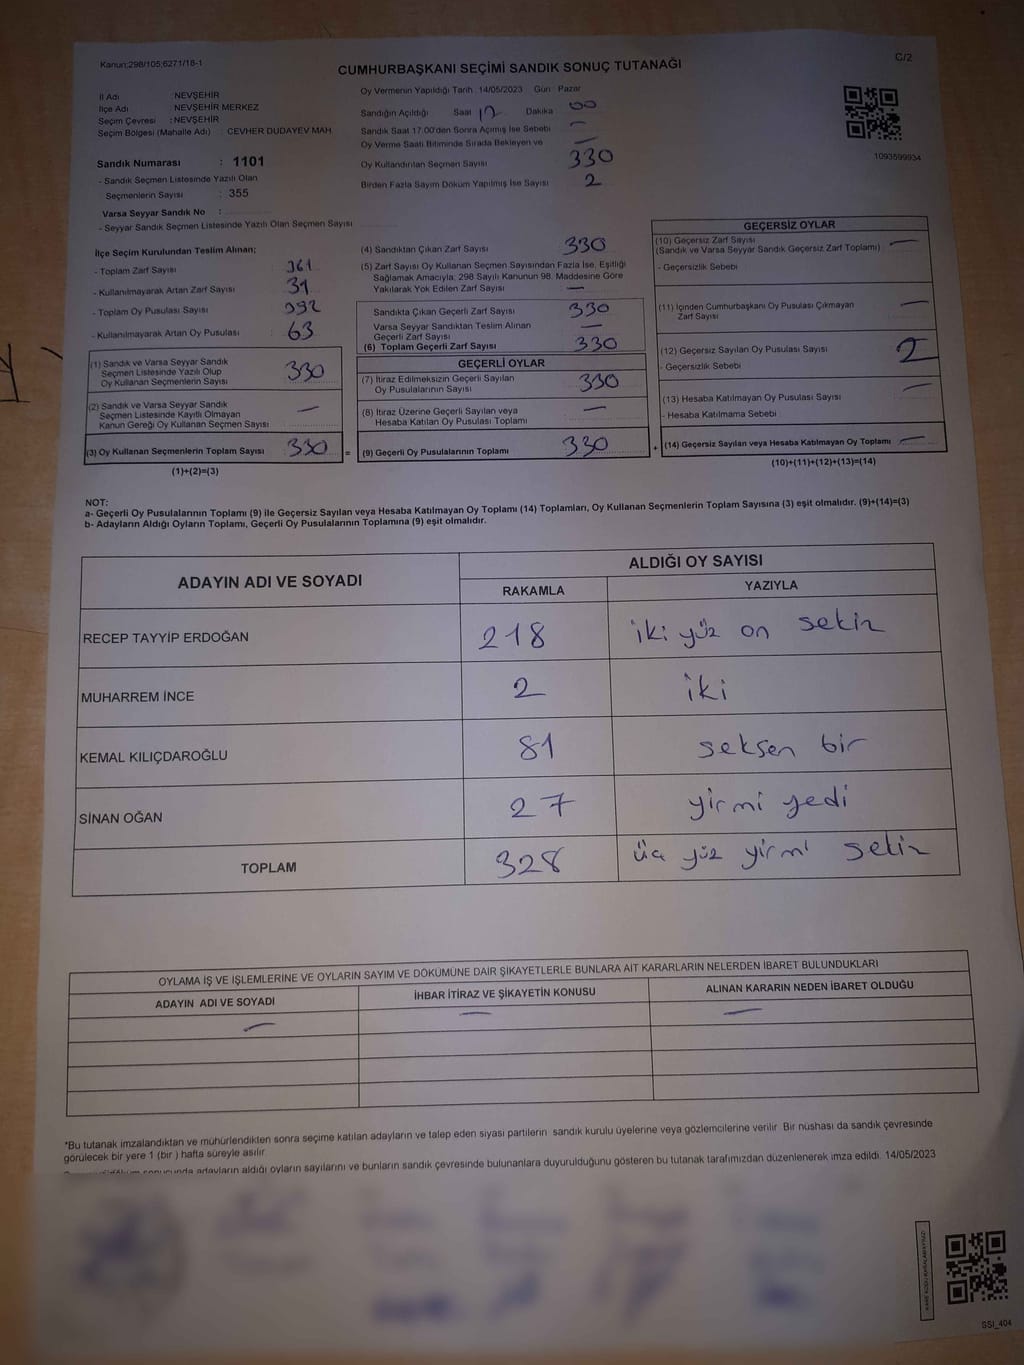 Kanun:298/105;6271/18-1
C/2
CUMHURBAŞKANI SEÇİMİ SANDIK SONUÇ TUTANAĞI
İl Adı : NEVŞEHİR
İlçe Adı : NEVŞEHİR MERKEZ
Seçim Çevresi : NEVŞEHİR
Seçim Bölgesi (Mahalle Adı) : CEVHER DUDAYEV MAH.
Sandık Numarası : 1101
- Sandık Seçmen Listesinde Yazılı Olan
Seçmenlerin Sayısı : 355
Varsa Seyyar Sandık No :
- Seyyar Sandık Seçmen Listesinde Yazılı Olan Seçmen Sayısı
Oy Vermenin Yapıldığı Tarih : 14/05/2023 Gün : Pazar
Sandığın Açıldığı Saat 17 Dakika 00
Sandık Saat 17.00'den Sonra Açılmış İse Sebebi —
Oy Verme Saati Bitiminde Sırada Bekleyen ve —
Oy Kullandırılan Seçmen Sayısı 330
Birden Fazla Sayım Döküm Yapılmış İse Sayısı 2
1093599934
İlçe Seçim Kurulundan Teslim Alınan;
- Toplam Zarf Sayısı 361
- Kullanılmayarak Artan Zarf Sayısı 31
- Toplam Oy Pusulası Sayısı 392
- Kullanılmayarak Artan Oy Pusulası 63
(1) Sandık ve Varsa Seyyar Sandık
Seçmen Listesinde Yazılı Olup
Oy Kullanan Seçmenlerin Sayısı 330
(2) Sandık ve Varsa Seyyar Sandık
Seçmen Listesinde Kayıtlı Olmayan
Kanun Gereği Oy Kullanan Seçmen Sayısı —
(3) Oy Kullanan Seçmenlerin Toplam Sayısı 330 =
(1)+(2)=(3)
(4) Sandıktan Çıkan Zarf Sayısı 330
(5) Zarf Sayısı Oy Kullanan Seçmen Sayısından Fazla İse, Eşitliği
Sağlamak Amacıyla; 298 Sayılı Kanunun 98. Maddesine Göre
Yakılarak Yok Edilen Zarf Sayısı —
Sandıkta Çıkan Geçerli Zarf Sayısı 330
Varsa Seyyar Sandıktan Teslim Alınan
Geçerli Zarf Sayısı —
(6) Toplam Geçerli Zarf Sayısı 330
GEÇERLİ OYLAR
(7) İtiraz Edilmeksizin Geçerli Sayılan
Oy Pusulalarının Sayısı 330
(8) İtiraz Üzerine Geçerli Sayılan veya
Hesaba Katılan Oy Pusulası Toplamı —
(9) Geçerli Oy Pusulalarının Toplamı 330 +
GEÇERSİZ OYLAR
(10) Geçersiz Zarf Sayısı —
(Sandık ve Varsa Seyyar Sandık Geçersiz Zarf Toplamı)
- Geçersizlik Sebebi
(11) İçinden Cumhurbaşkanı Oy Pusulası Çıkmayan —
Zarf Sayısı
(12) Geçersiz Sayılan Oy Pusulası Sayısı 2
- Geçersizlik Sebebi
(13) Hesaba Katılmayan Oy Pusulası Sayısı —
- Hesaba Katılmama Sebebi
(14) Geçersiz Sayılan veya Hesaba Katılmayan Oy Toplamı —
(10)+(11)+(12)+(13)=(14)
NOT:
a- Geçerli Oy Pusulalarının Toplamı (9) ile Geçersiz Sayılan veya Hesaba Katılmayan Oy Toplamı (14) Toplamları, Oy Kullanan Seçmenlerin Toplam Sayısına (3) eşit olmalıdır. (9)+(14)=(3)
b- Adayların Aldığı Oyların Toplamı, Geçerli Oy Pusulalarının Toplamına (9) eşit olmalıdır.
ADAYIN ADI VE SOYADI ALDIĞI OY SAYISI
RAKAMLA YAZIYLA
RECEP TAYYİP ERDOĞAN 218 iki yüz on sekiz
MUHARREM İNCE 2 iki
KEMAL KILIÇDAROĞLU 81 seksen bir
SİNAN OĞAN 27 yirmi yedi
TOPLAM 328 üç yüz yirmi sekiz
OYLAMA İŞ VE İŞLEMLERİNE VE OYLARIN SAYIM VE DÖKÜMÜNE DAİR ŞİKAYETLERLE BUNLARA AİT KARARLARIN NELERDEN İBARET BULUNDUKLARI
ADAYIN ADI VE SOYADI İHBAR İTİRAZ VE ŞİKAYETİN KONUSU ALINAN KARARIN NEDEN İBARET OLDUĞU
— — —
*Bu tutanak imzalandıktan ve mühürlendikten sonra seçime katılan adayların ve talep eden siyasi partilerin sandık kurulu üyelerine veya gözlemcilerine verilir. Bir nüshası da sandık çevresinde
görülecek bir yere 1 (bir) hafta süreyle asılır.
sonucunda adayların aldığı oyların sayılarını ve bunların sandık çevresinde bulunanlara duyurulduğunu gösteren bu tutanak tarafımızdan düzenlenerek imza edildi. 14/05/2023
SSI_404